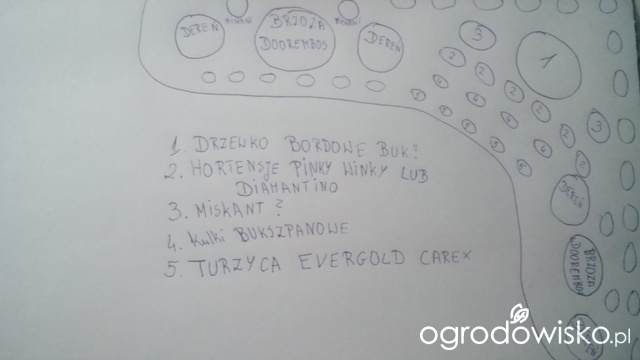 MISKANT
MISKANT
DEREŃ
BRZOZA
DOOREMBOS
DEREŃ
3
1
2
2
2
2
2
2
3
DEREŃ
BRZOZA
DOOREMBOS
1. DRZEWKO BORDOWE BUK?
2. HORTENSJE PINKY WINKY LUB
DIAMANTINO
3. MISKANT ?
4. KULKI BUKSZPANOWE
5. TURZYCA EVERGOLD CAREX
ogrodowisko.pl